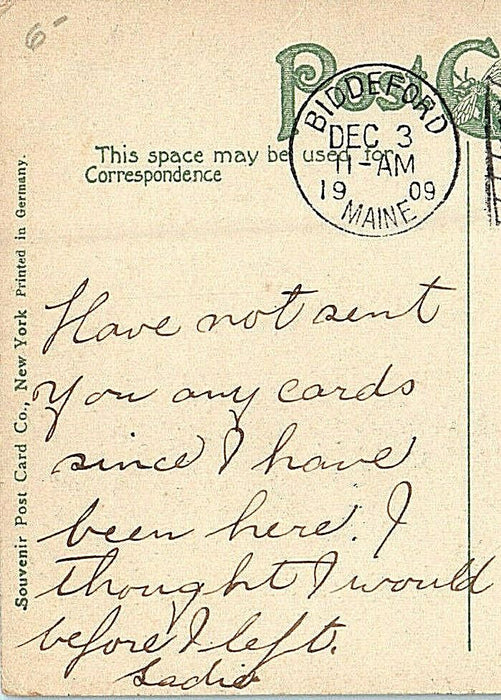 6-
Post C
BIDDEFORD
DEC 3
11-AM
19 09
MAINE
This space may be used for
Correspondence
Souvenir Post Card Co., New York Printed in Germany.
Have not sent
you any cards
since I have
been here. I
thought I would
before I left.
Sadie